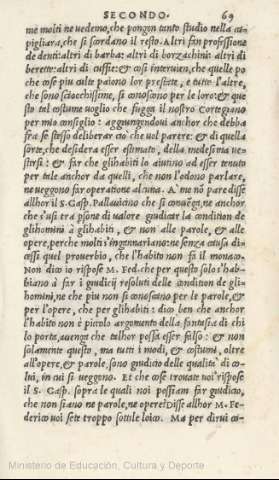 SECONDO. 69
me molti ne vedemo, che pongon tanto studio nella ca
pigliara, che si scordano il resto. Altri fan professione
de denti: altri di barba: altri di borzachini: altri di
berette: altri di cuffie: & cosi intervien, che quelle po
che cose piu culte paiono lor prestite, e tutte l'altre,
che sono sciocchissime, si conoscono per le loro: & que
sto tal costume voglio che fugga il nostro Cortegiano
per mio consiglio: aggiungendovi anchor che debba
fra se stesso deliberar ciò che vol parere: & di quella
sorte, che desidera esser estimato, della medesima ve-
stirsi: & far che gli habiti lo aiutino ad esser tenuto
per tale anchor da quelli, che non l'odono parlare,
ne veggono far operatione alcuna. A' me nō pare disse
allhor il S. Gasp. Pallavicino che si convēga, ne anchor
che s'usi tra psone di valore giudicar la condition de
gli homini à gli habiti, & non alle parole, & alle
opere, perche molti s'ingannariano: ne senza causa di-
cessi quel proverbio, che l'habito non fa il monaco.
Non dico io rispose M. Fed. che per questo solo s'hab-
biano à far i giudicij resoluti delle condition de gli-
homini, ne che piu non si conoscano per le parole, &
per l'opere, che per gli habiti: dico ben che anchor
l'habito non è piccolo argomento della fantasia di chi
lo porta, avenga che talhor possa esser falso: & non
solamente questo, ma tutti i modi, & costumi, oltre
all'opere, & parole, sono giudicio delle qualità di co-
lui, in cui si veggono. Et che cose trovate voi rispose
il S. Gasp. sopra le quali noi possiam far giudicio,
che non siano ne parole, ne opere? Disse allhor M. Fe-
derico voi sete troppo sottile loico. Ma per dirvi co-
Ministerio de Educación, Cultura y Deporte